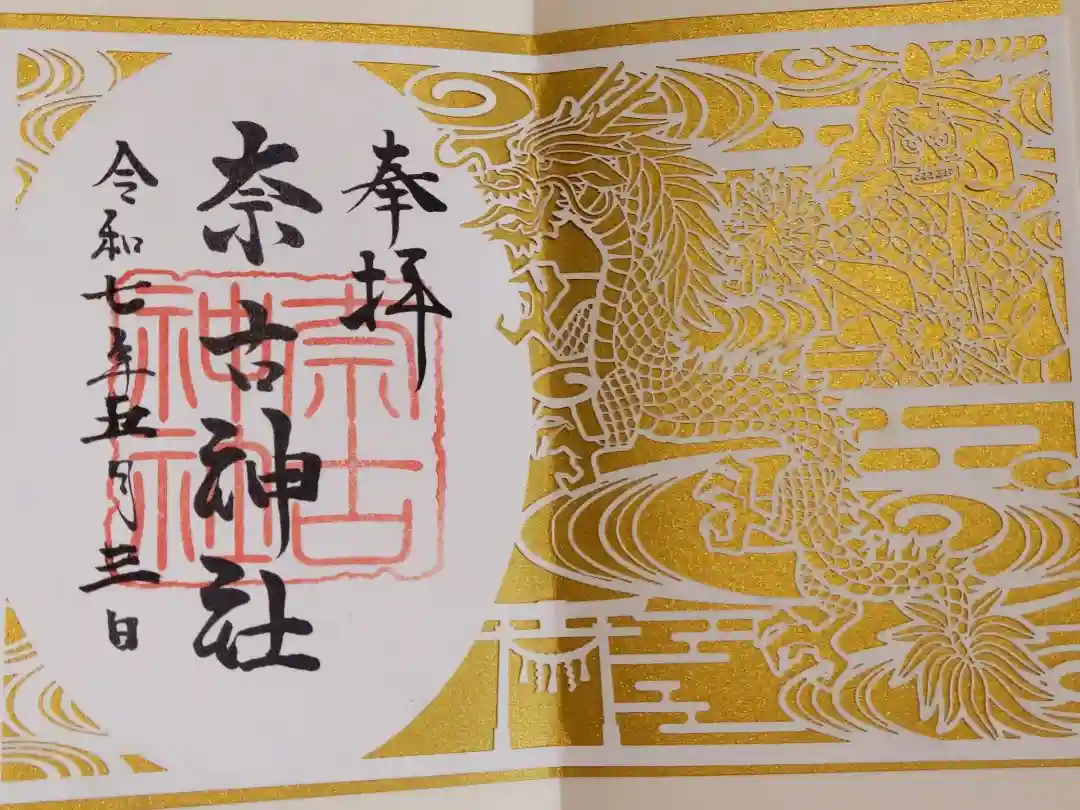 奉拝
奈古神社
奈古神社
令和七年五月三日